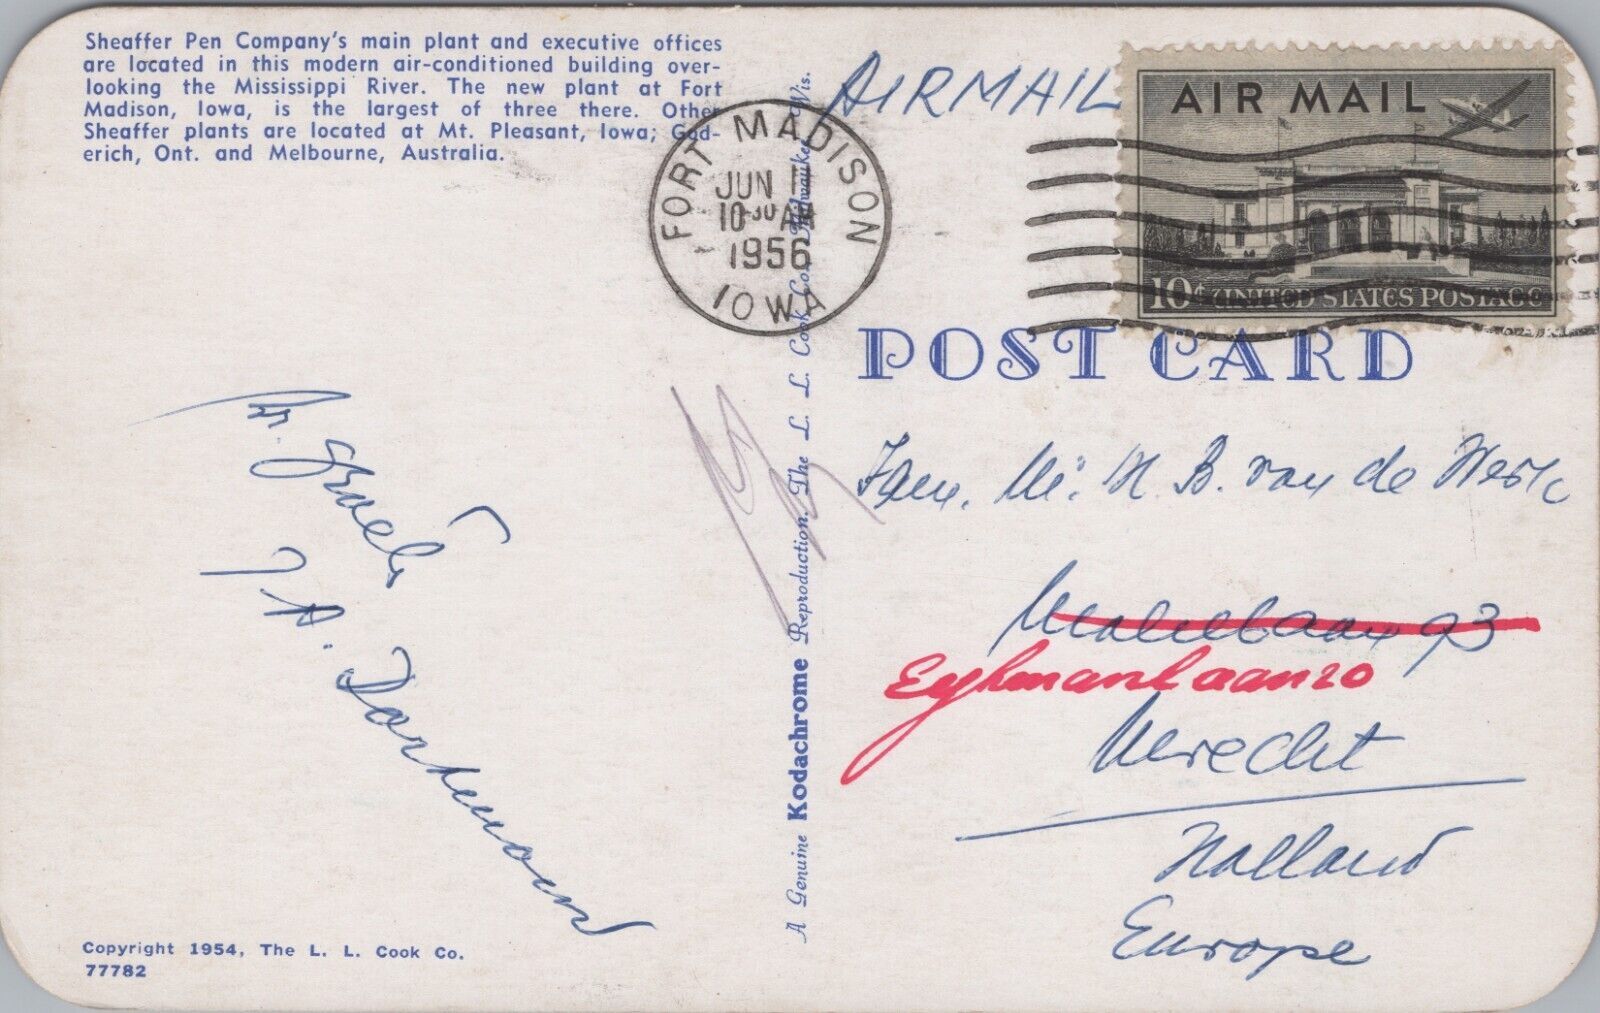 Sheaffer Pen Company's main plant and executive offices
are located in this modern air-conditioned building over-
looking the Mississippi River. The new plant at Fort
Madison, Iowa, is the largest of three there. Other
Sheaffer plants are located at Mt. Pleasant, Iowa; God-
erich, Ont. and Melbourne, Australia.
AIRMAIL
AIR MAIL
10¢ UNITED STATES POSTAGE
FORT MADISON
JUN 1
10 30 AM
1956
IOWA
POST CARD
A Genuine Kodachrome Reproduction. The L. L. Cook Co., Milwaukee, Wis.
Fam. H. B. van de Werk
93
Eykmanlaan 20
Utrecht
Holland
Europe
Copyright 1954, The L. L. Cook Co.
77782